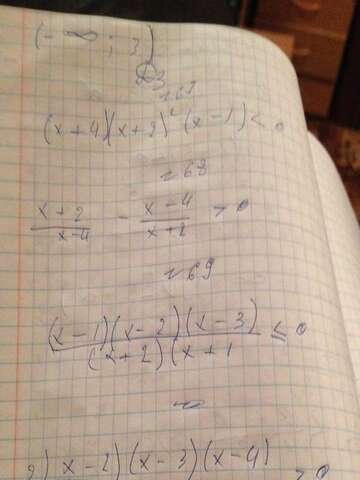 (-∞; 3)
D3
№67
(x+4)(x+2)²(x-1)<0
№68
x+2/x-4 - x-4/x+2 > 0
№69
(x-1)(x-2)(x-3)/(x+2)(x+1 ≤ 0
x-2)(x-3)(x-4)
>0